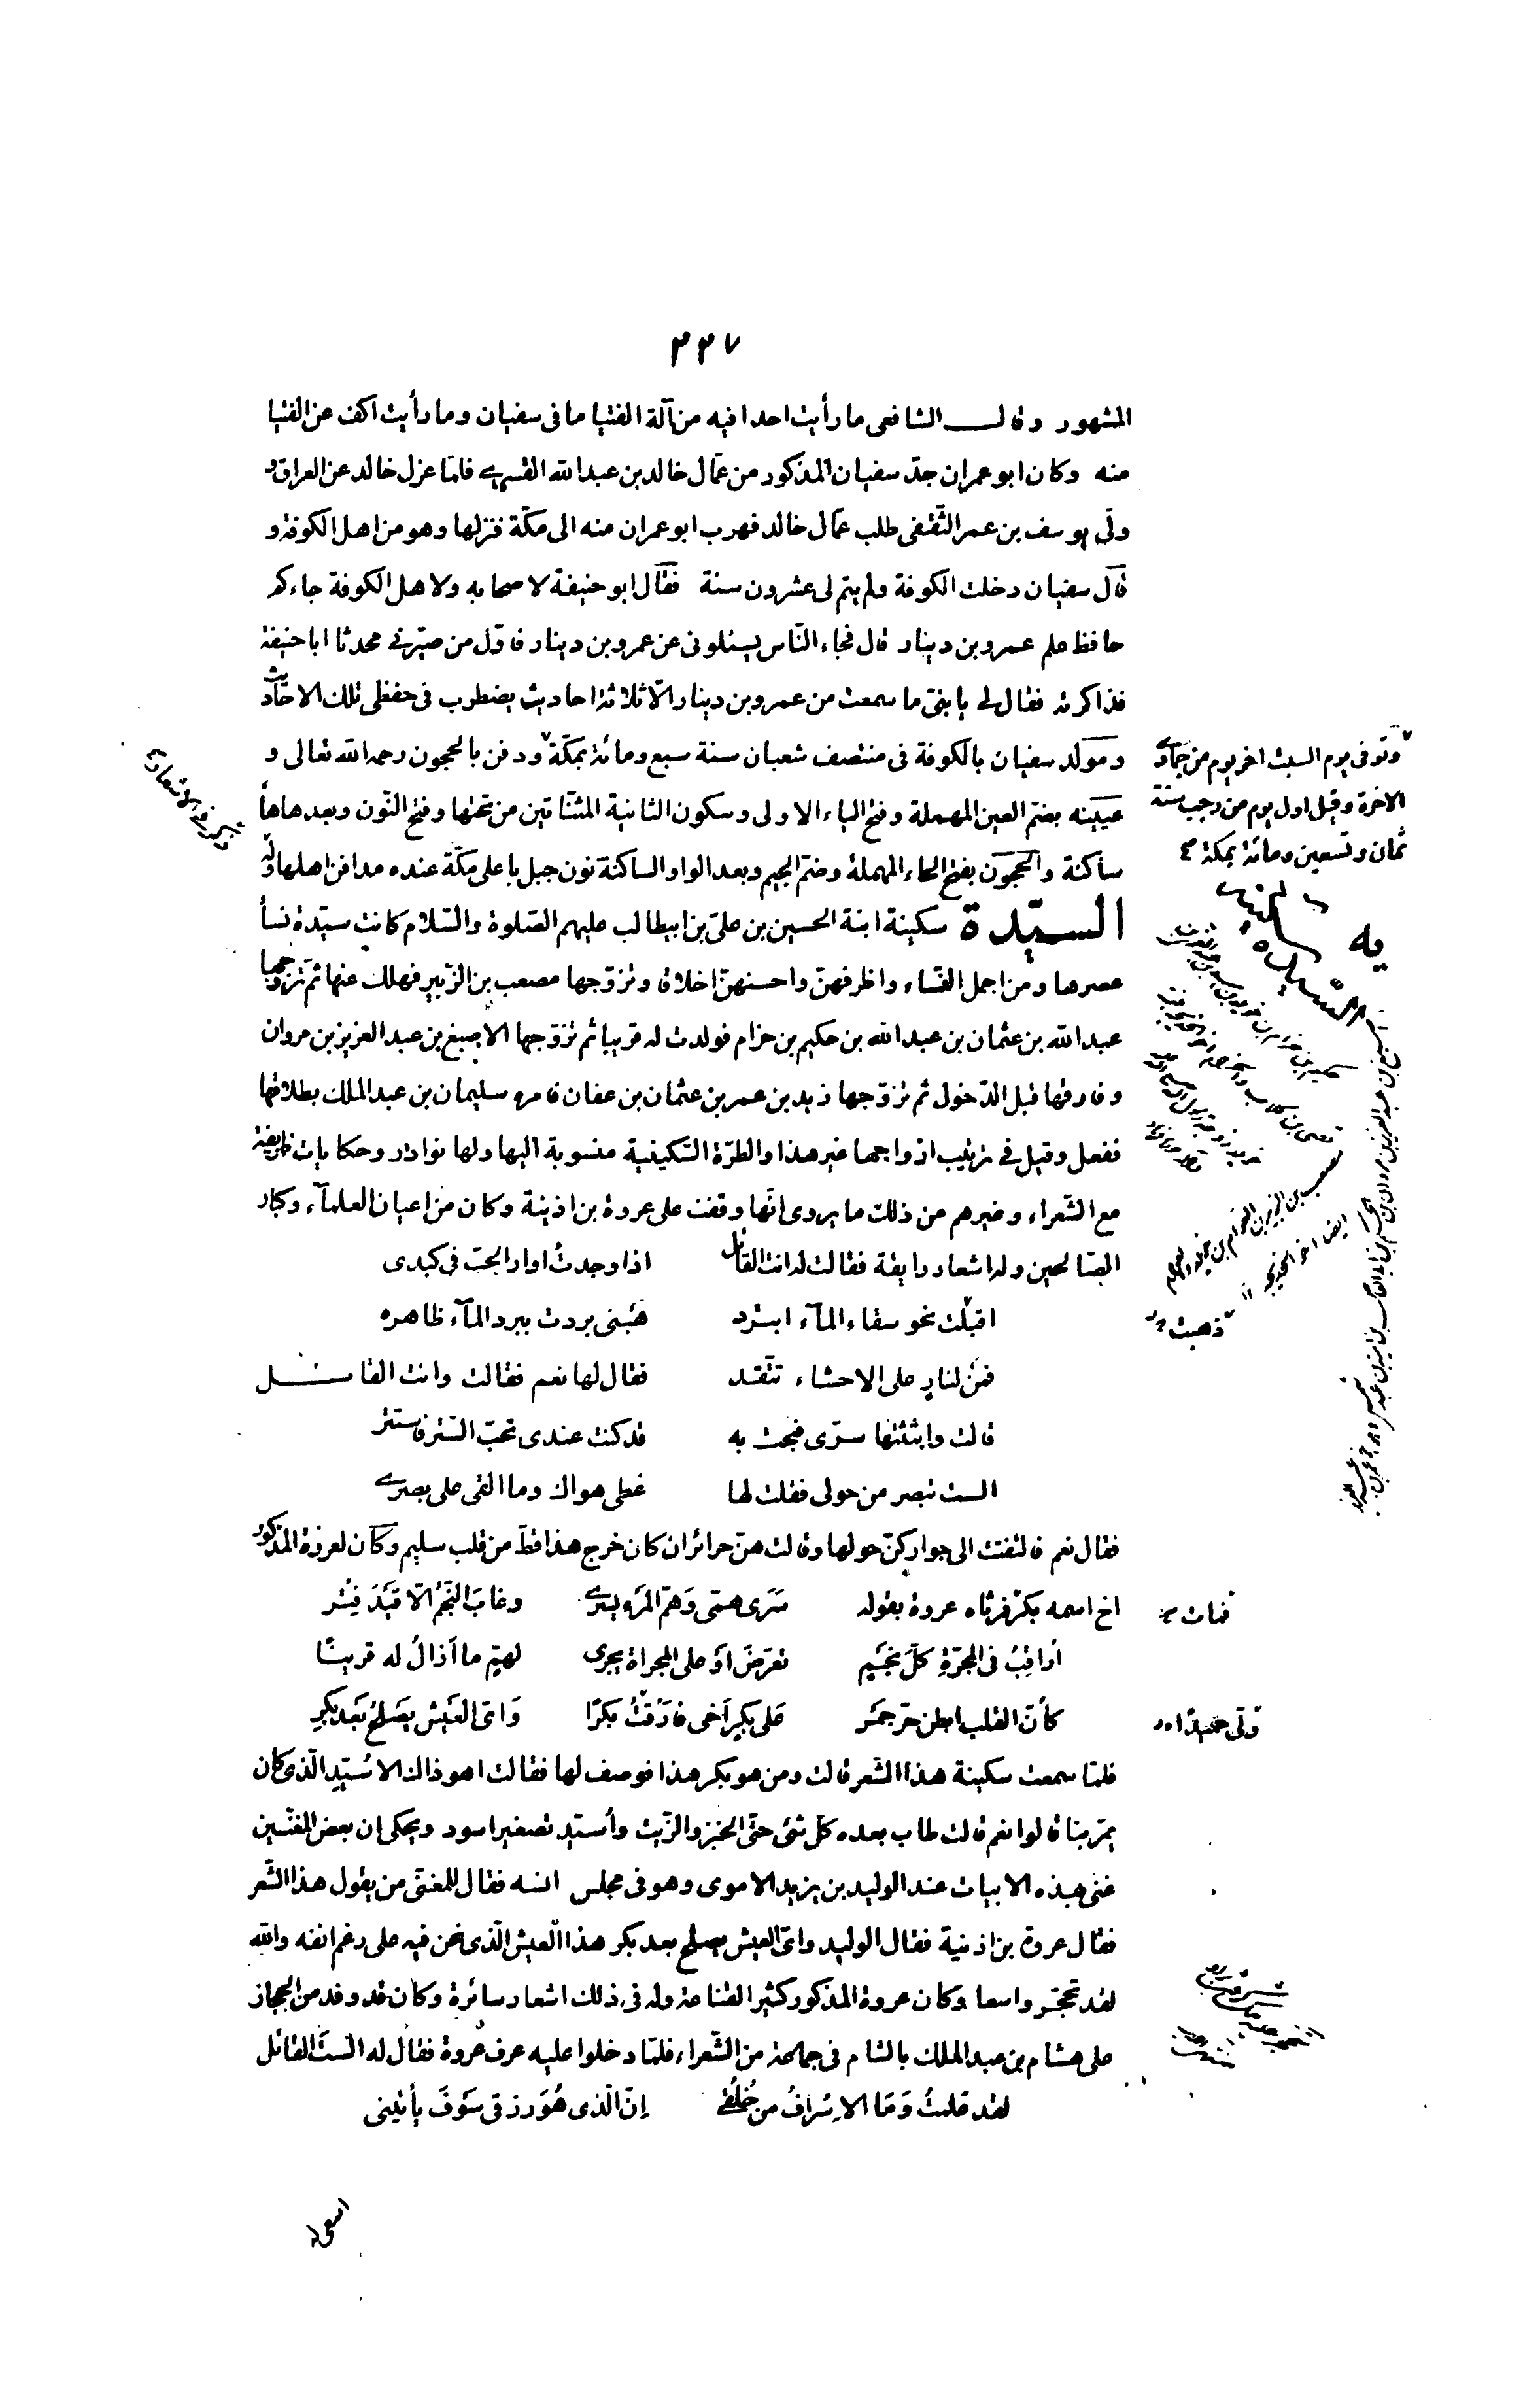 ٢٢٧
المشهور وقال الشافعى ما رأيت احدا فيه من آلة الفتيا ما فى سفيان وما رأيت اكف عن الفتيا
منه وكان ابو عمران جدّ سفيان المذكور من عمّال خالد بن عبد الله القسرى فلمّا عزل خالد عن العراق و
ولّى يوسف بن عمر الثّقفى طلب عمّال خالد فهرب ابو عمران منه الى مكّة فنزلها وهو من اهل الكوفة و
قال سفيان دخلت الكوفة ولم يتم لى عشرون سنة فقال ابو حنيفة لاصحابه ولاهل الكوفة جاءكم
حافظ علم عمرو بن دينار قال فجاء النّاس يسئلونى عن عمرو بن دينار فاوّل من صيّرنى محدثا ابا حنيفة
فذاكرته فقال لى يا بنىّ ما سمعت من عمرو بن دينار الّا ثلاثة احاديث يضطرب فى حفظى تلك الاحاديث
ومولد سفيان بالكوفة فى منتصف شعبان سنة سبع ومائة بمكّة ودفن بالحجون رحمه الله تعالى و
وتوفى يوم السبت اخر يوم من جمادى
الاخرة وقيل اول يوم من رجب سنة
ثمان وتسعين ومائة بمكة
عيينه بضمّ العين المهملة وفتح الياء الاولى وسكون الثانية المثنّاتين من تحتها وفتح النّون وبعدها هاأ
ساكنة والحجون بفتح الحاء المهملة وضمّ الجيم وبعد الواو الساكنة نون جبل باعلى مكّة عنده مدافن اهلها وله
السيّدة سكينة
السيّدة سكينة ابنة الحسين بن علىّ بن ابيطالب عليهم الصّلوة والسّلام كانت سيّدة نسأ
عصرها ومن اجمل النّساء واظرفهنّ واحسنهنّ اخلاق وتزوّجها مصعب بن الزّبير فهلك عنها ثمّ تزوّجها
عبد الله بن عثمان بن عبد الله بن حكيم بن حزام فولدت له قريبا ثم تزوّجها الاصبغ بن عبد العزيز بن مروان
وفارقها قبل الدّخول ثم تزوّجها زيد بن عمر بن عثمان بن عفان فامره سليمان بن عبد الملك بطلاقها
ففعل وقيل فى ترتيب ازواجها غير هذا والطرّة السّكينية منسوبة اليها ولها نوادر وحكايات ظريفة
مع الشّعراء وغيرهم من ذلك ما يروى انّها وقفت على عروة بن اذينة وكان من اعيان العلمآء وكبار
الصّالحين وله اشعار رايقة فقالت له انت القائل اذا وجدتُ اوار الحبّ فى كبدى
اقبلت نحو سقاء المآء ابترد هَبنى بردت ببرد المآء ظاهره
ذهبت
فمَن لنارٍ على الاحشاء تتّقد فقال لها نعم فقالت وانت القائل
قالت وابثثتها سرّى فبحت به قد كنت عندى تحبّ السّتر فاستتر
الست تبصر من حولى فقلت لها غطى هواك وما القى على بصرى
فقال نعم فالتفتت الى جوار كنّ حولها وقالت هنّ حرائر ان كان خرج هذا قطّ من قلب سليم وكان لعروة المذكور
اخ اسمه بكر فرثاه عروة بقوله سَرَى همّى وَهمّ المَرء يسرى وغابَ النّجمُ الّا قَيدَ فِتر
فمات
أراقِبُ فى المجرّةِ كلّ نجمٍ تعرّضَ اوْ على المجراة يجرى لهمّ ما اَزالُ له قرينًا
كأنّ القلب ابطن حرّ جمر عَلى بَكرٍ اَخى فارَقتُ بكرًا وَاىّ العَيش يَصلحُ بَعد بَكرِ
ولّى حميدًا
فلمّا سمعت سكينة هذا الشّعر قالت ومن هو بكر هذا فوصف لها فقالت اهو ذاك الاُسَيّد الّذى كان
يمرّ بنا قالوا نعم قالت طاب بعده كلّ شئ حتّى الخبز والزّيت وأسيّد تصغير اسود ويحكى ان بعض المغنّيين
غنى هذه الابيات عند الوليد بن يزيد الاموى وهو فى مجلس انسه فقال للمغنّى من يقول هذا الشّعر
فقال عروة بن اذنية فقال الوليد واىّ العيش يصلح بعد بكر هذا العيش الّذى نحن فيه على رغم انفه والله
لقد تحجّر واسعا وكان عروة المذكور كثير القناعة وله فى ذلك اشعار سائرة وكان قد وفد من الحجاز
على هشام بن عبد الملك بالشام فى جماعة من الشّعراء فلمّا دخلوا عليه عرف عُروة فقال له الستَ القائل
لقد علمتُ وَمَا الاِسْرَافُ من خُلُقى اِنّ الّذى هُوَ رزقى سَوفَ يأتينى
اسعى له